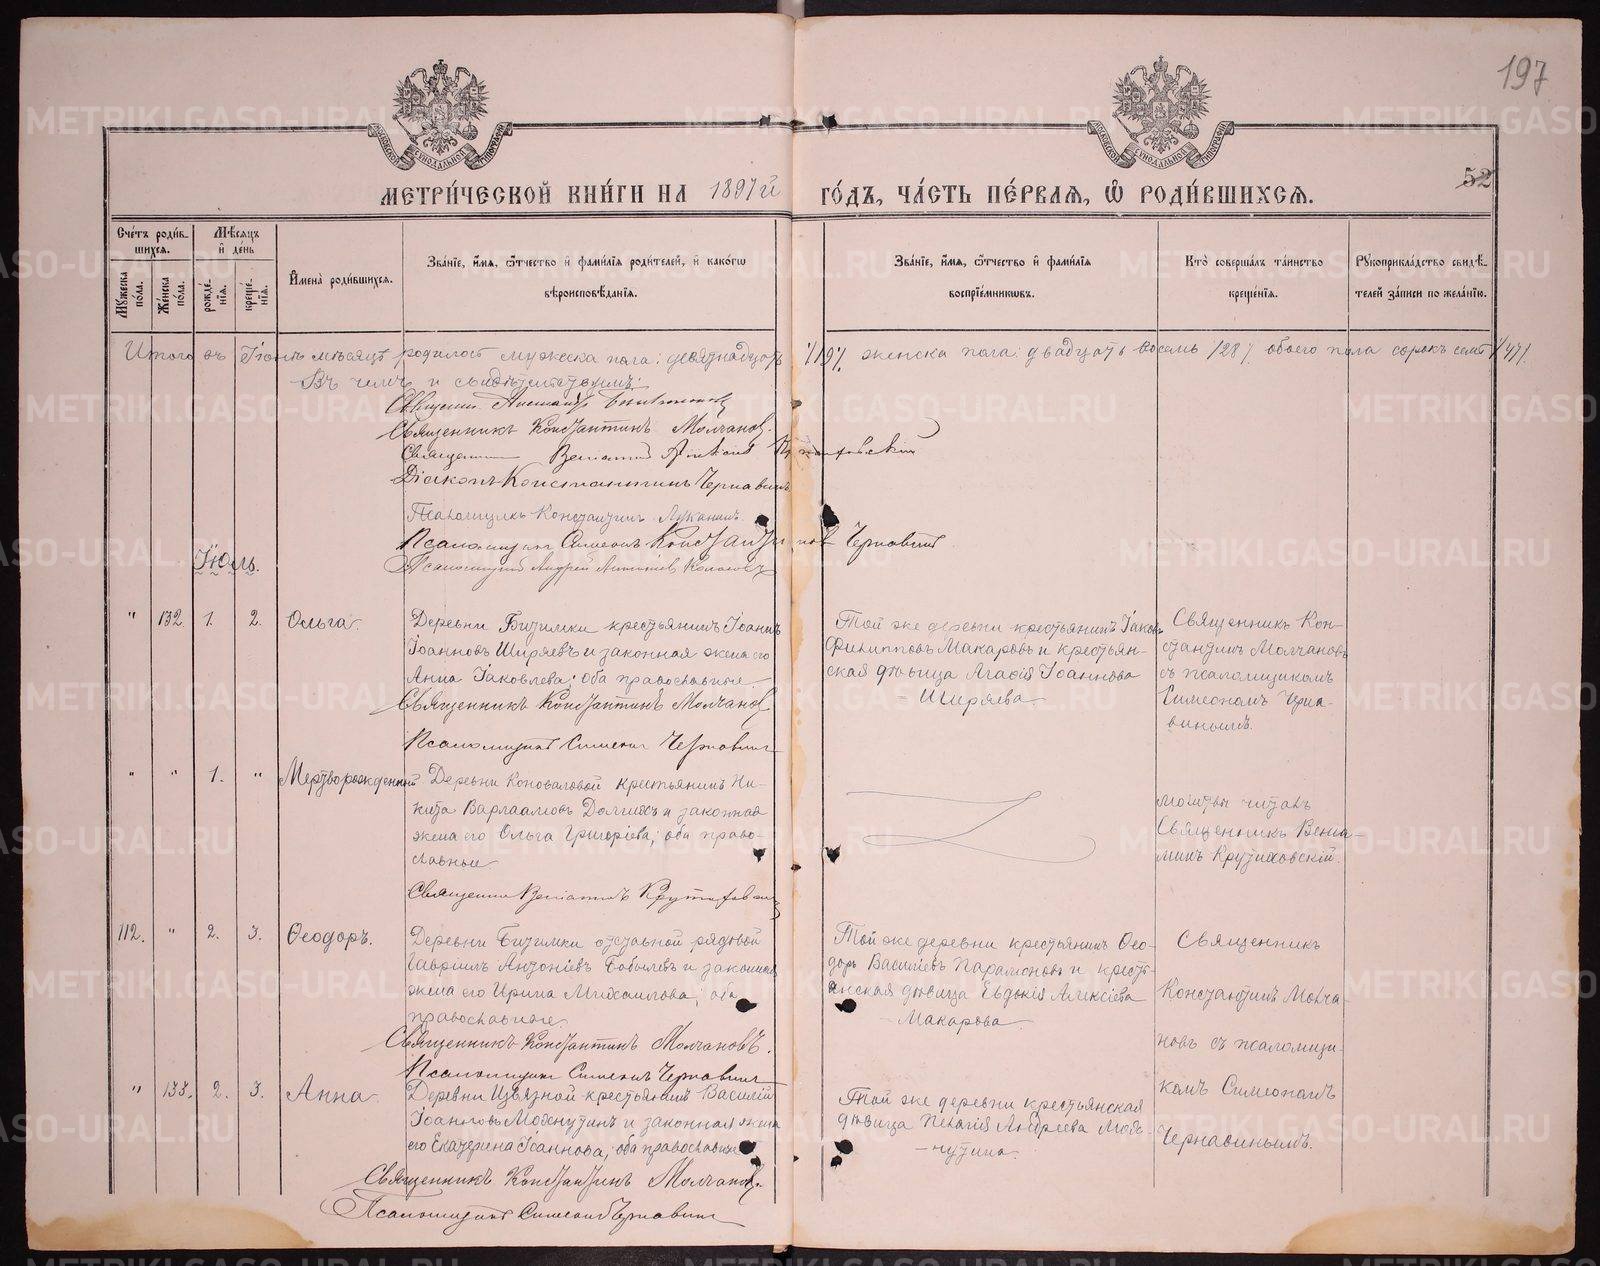 197
52
МЕТРИ́ЧЕСКОЙ КНИ́ГИ НА 1897й ГО́ДЪ, ЧА́СТЬ ПЕ́РВАЯ, Ѿ РОДИ́ВШИХСЯ.
Сче́тъ роди́в-
шихся.
Мѣ́сяцъ
и де́нь
Мꙋжеска по́ла.
Же́нска по́ла.
рожде́-
нїя.
креще́-
нїя.
Имена̀ роди́вшихся.
Зва́нїе, и́мя, ѻ҆́тчество и фами́лїя роди́телей, и како́гѡ
вѣроисповѣ́данїя.
Зва́нїе, и́мя, ѻ҆́тчество и фами́лїя
воспрїе́мниковъ.
Кто̀ соверша́лъ та́инство
креще́нїя.
Рꙋкоприкла́дство свидѣ́-
телей за́писи по жела́нїю.
Итого въ Іюнѣ мѣсяцѣ родилось мужеска пола: девятнадцать /19/. женска пола: двадцать восемь /28/ обоего пола сорокъ семь /47/.
Въ чемъ и свидѣтельствуемъ:
Священникъ Константинъ Молчановъ.
Священникъ Веніаминъ
Діаконъ Константинъ Чернавинъ
Псаломщикъ Константинъ Луканинъ
Псаломщикъ Симеонъ Константиновъ Чернавинъ
Псаломщикъ Андрей
Іюль.
" 132. 1. 2. Ольга.
Деревни Битимки крестьянинъ Іоаннъ
Іоанновъ Ширяевъ и законная жена его
Анна Іаковлева; оба православные
Священникъ Константинъ Молчановъ
Псаломщикъ Симеонъ Чернавинъ
Той же деревни крестьянинъ Іаковъ
Филипповъ Макаровъ и крестьян-
ская дѣвица Агафія Іоаннова
Ширяева.
Священникъ Кон-
стантинъ Молчановъ
съ псаломщикомъ
Симеономъ Черна-
винымъ.
" " 1. " Мертворожденный
Деревни Коноваловой крестьянинъ Ни-
кита Варлаамовъ Долгихъ и законная
жена его Ольга Григоріева; оба право-
славные
Священникъ Веніаминъ Крутиховскій
молитвы читалъ
Священникъ Вениа-
минъ Крутиховскій.
112. " 2. 3. Ѳеодоръ.
Деревни Битимки отставной рядовой
Гавріилъ Антоніевъ Бобылевъ и законная
жена его Ирина Михаилова; оба
православные.
Священникъ Константинъ Молчановъ.
Псаломщикъ Симеонъ Чернавинъ
Той же деревни крестьянинъ Ѳео-
доръ Василіевъ Парамоновъ и кресть-
янская дѣвица Евдокія Алексіева
Макарова
Священникъ
Константинъ Молча-
новъ съ псаломщи-
комъ Симеономъ
Чернавинымъ.
" 133. 2. 3. Анна.
Деревни Извязной крестьянинъ Василій
Іоанновъ Мохнуткинъ и законная жена
его Екатерина Іоаннова; оба православные
Священникъ Константинъ Молчановъ.
Псаломщикъ Симеонъ Чернавинъ
Той же деревни крестьянская
дѣвица Пелагія Андреева